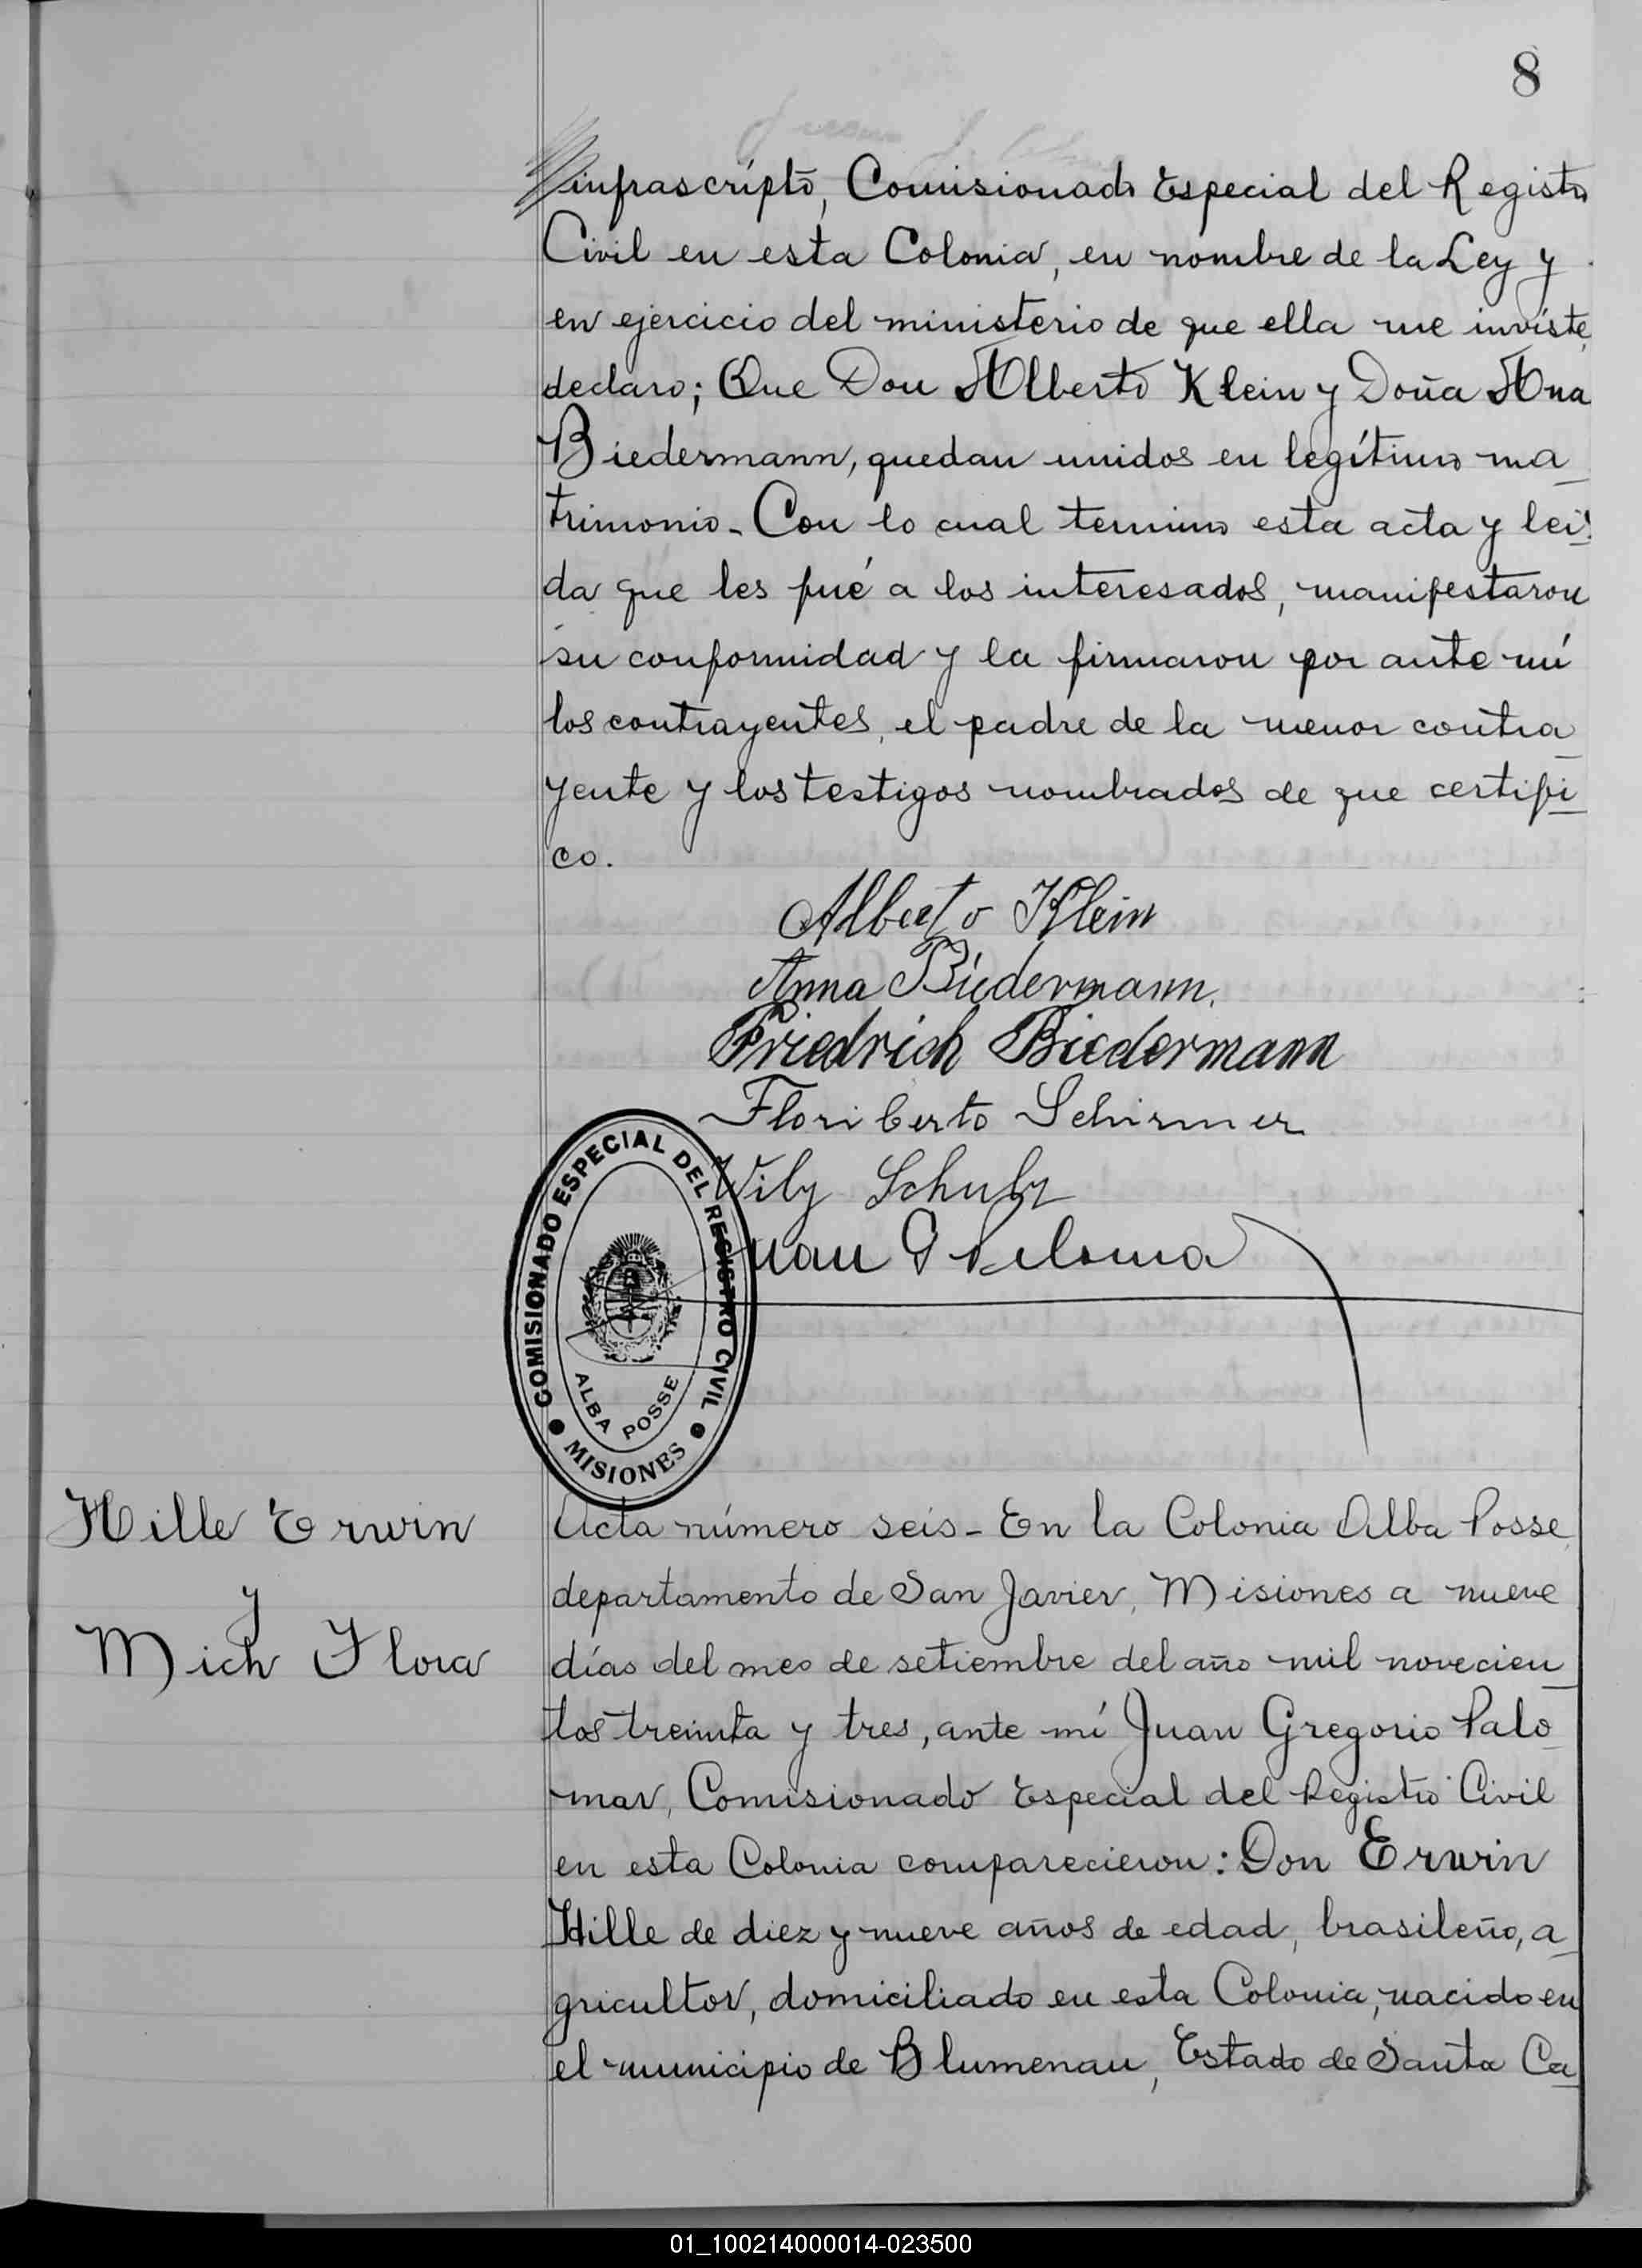 8
infrascripto, Comisionado Especial del Registro
Civil en esta Colonia, en nombre de la Ley y
en ejercicio del ministerio de que ella me inviste,
declaro; Que Don Alberto Klein y Doña Ana
Biedermann, quedan unidos en legítimo ma_
trimonio_ Con lo cual termino esta acta y leí_
da que les fué a los interesados, manifestaron
su conformidad y la firmaron por ante mí
los contrayentes, el padre de la menor contra_
yente y los testigos nombrados de que certifi_
co.
Alberto Klein
Anna Biedermann.
Friedrich Biedermann
Floriberto Schirmer
Wily Schulz
Juan G Paloma
COMISIONADO ESPECIAL DEL REGISTRO CIVIL
ALBA POSSE
MISIONES
Hille Erwin
y
Mich Flora
Acta número seis_ En la Colonia Alba Posse,
departamento de San Javier, Misiones a nueve
días del mes de setiembre del año mil novecien_
tos treinta y tres, ante mí Juan Gregorio Palo_
mar, Comisionado Especial del Registro Civil
en esta Colonia comparecieron: Don Erwin
Hille de diez y nueve años de edad, brasileño, a_
gricultor, domiciliado en esta Colonia, nacido en
el municipio de Blumenau, Estado de Santa Ca_
01_100214000014-023500